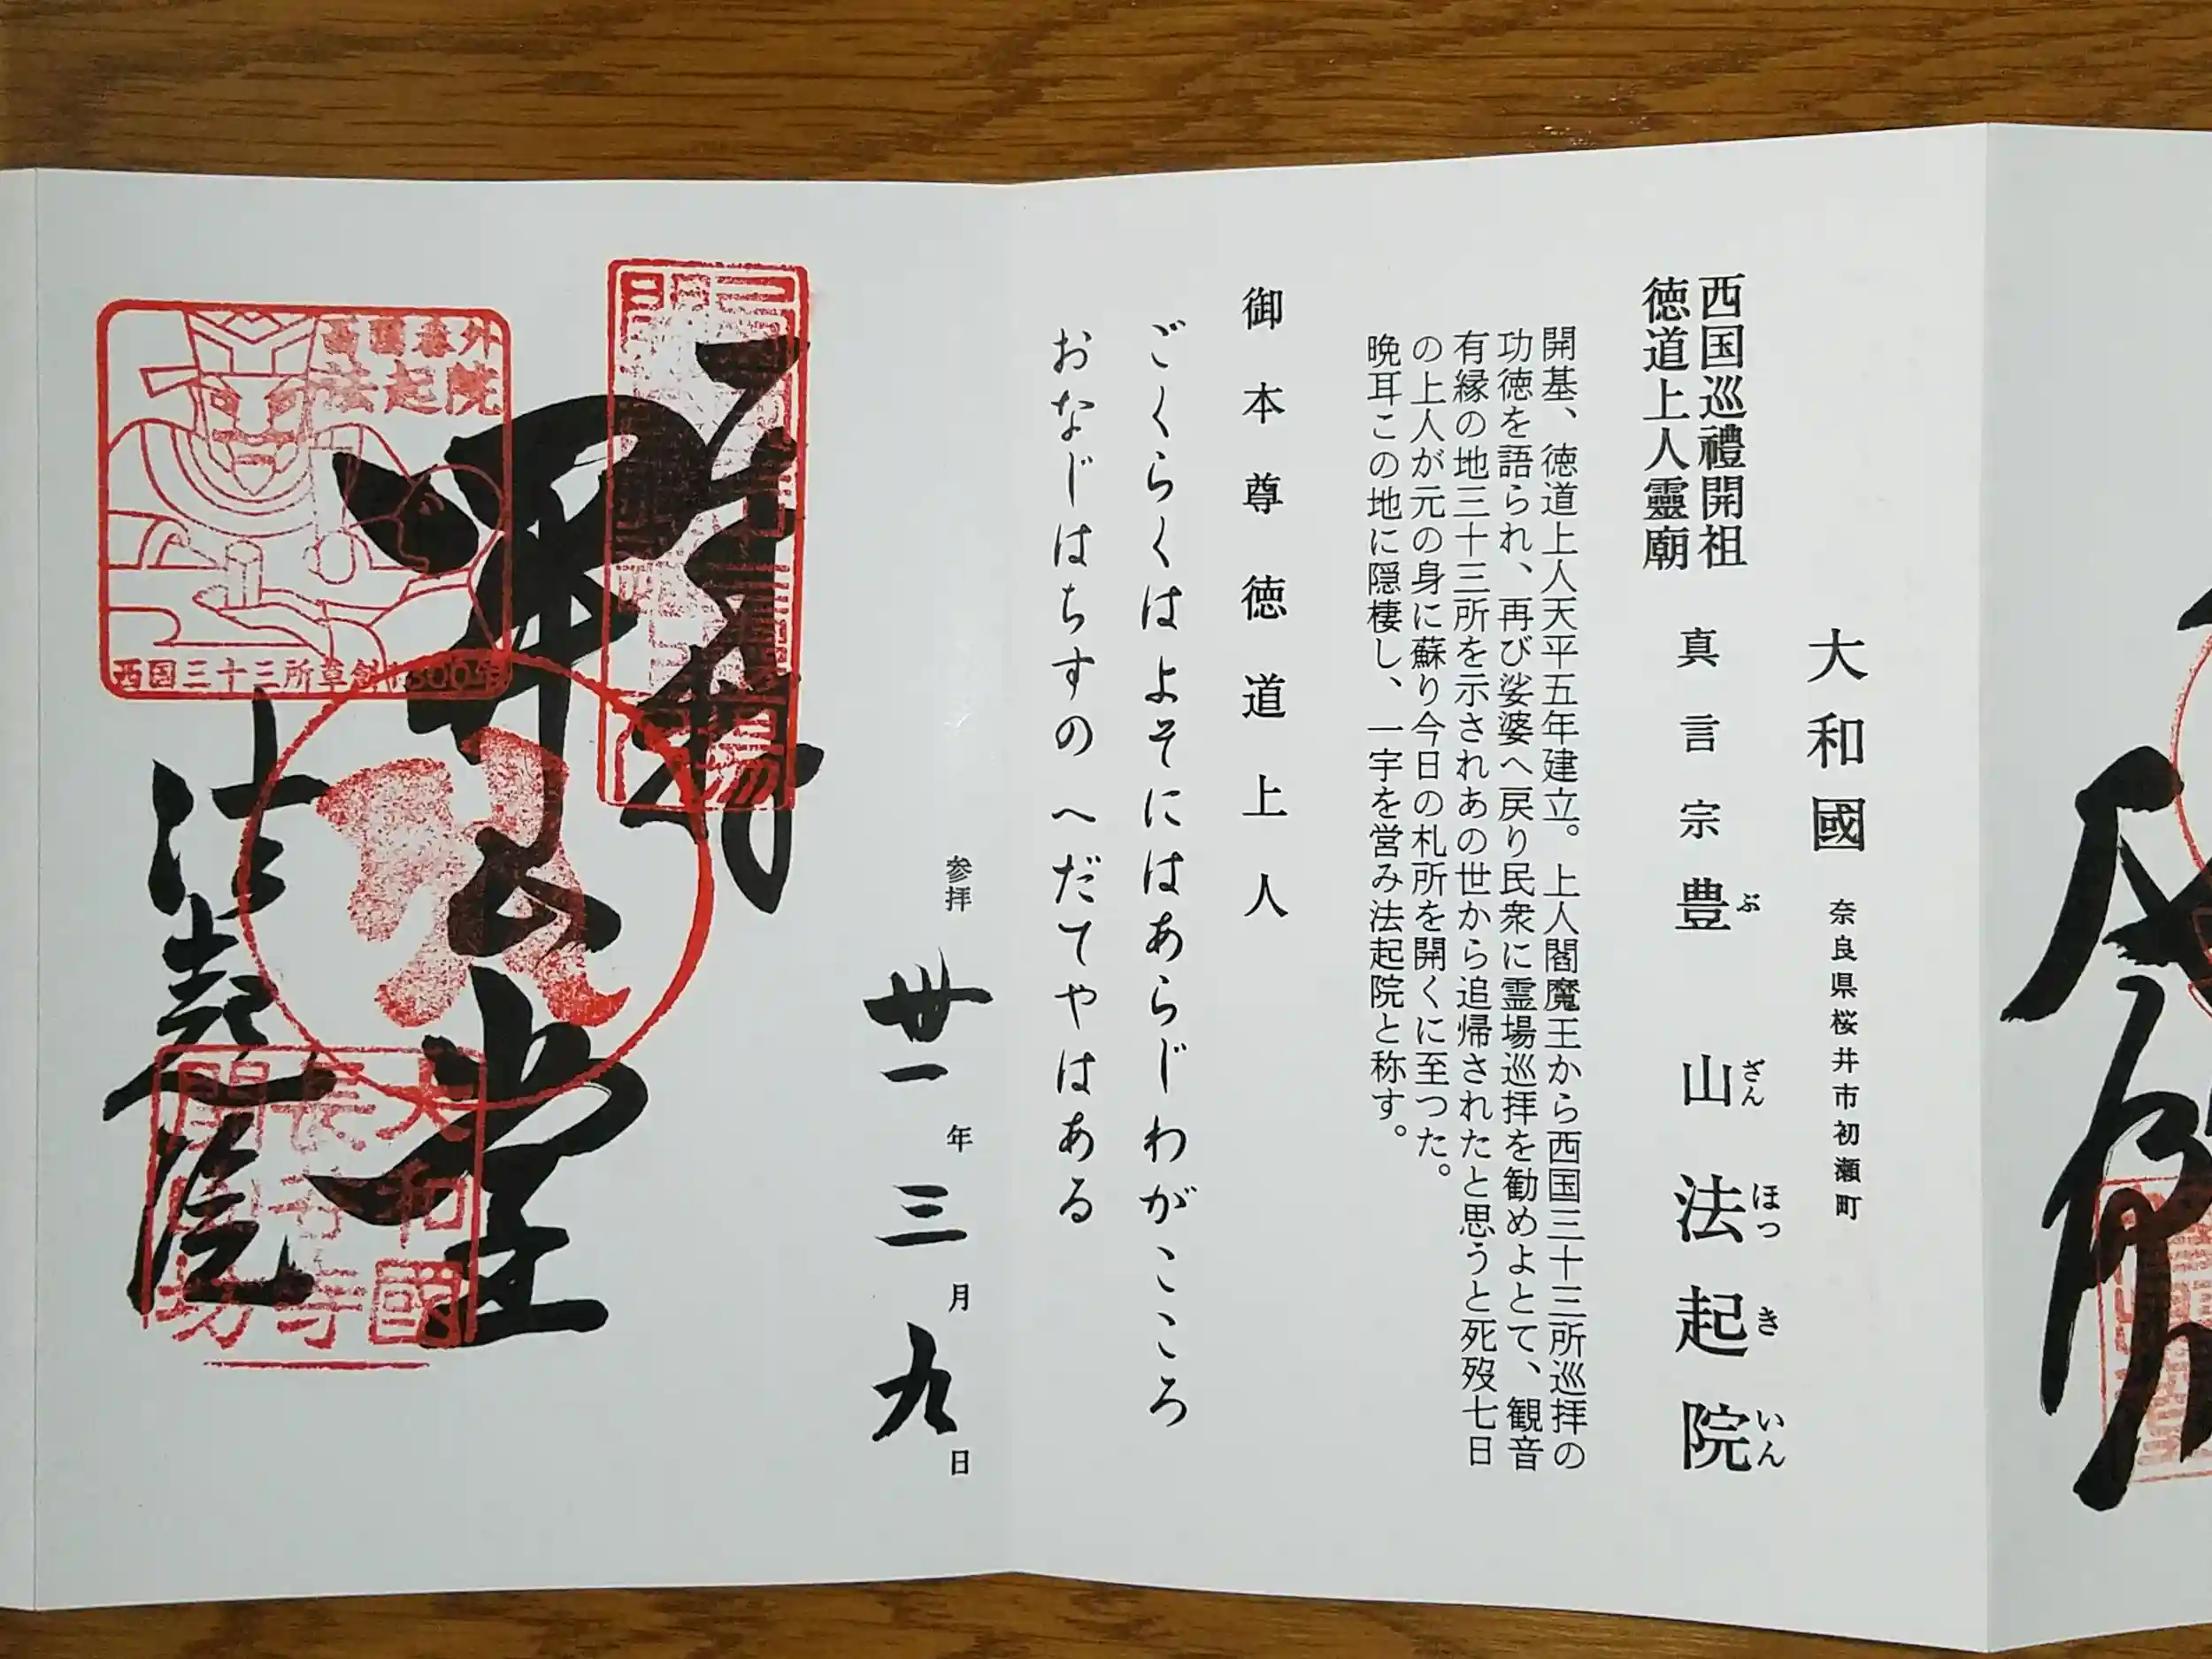 大和國 奈良県桜井市初瀬町
西国巡禮開祖
徳道上人靈廟
真言宗 豊山 法起院
ぶ ざん ほっ き いん
開基、徳道上人天平五年建立。上人閻魔王から西国三十三所巡拝の
功徳を語られ、再び娑婆へ戻り民衆に霊場巡拝を勧めよとて、観音
有縁の地三十三所を示されあの世から追帰されたと思うと死歿七日
の上人が元の身に蘇り今日の札所を開くに至つた。
晩耳この地に隠棲し、一宇を営み法起院と称す。
御本尊徳道上人
ごくらくはよそにはあらじわがこころ
おなじはちすのへだてやはある
参拝 丗一年三月九日
開山堂
法起院
西國番外
法起院
西国三十三所草創1300年
大和國
長谷寺
開山坊